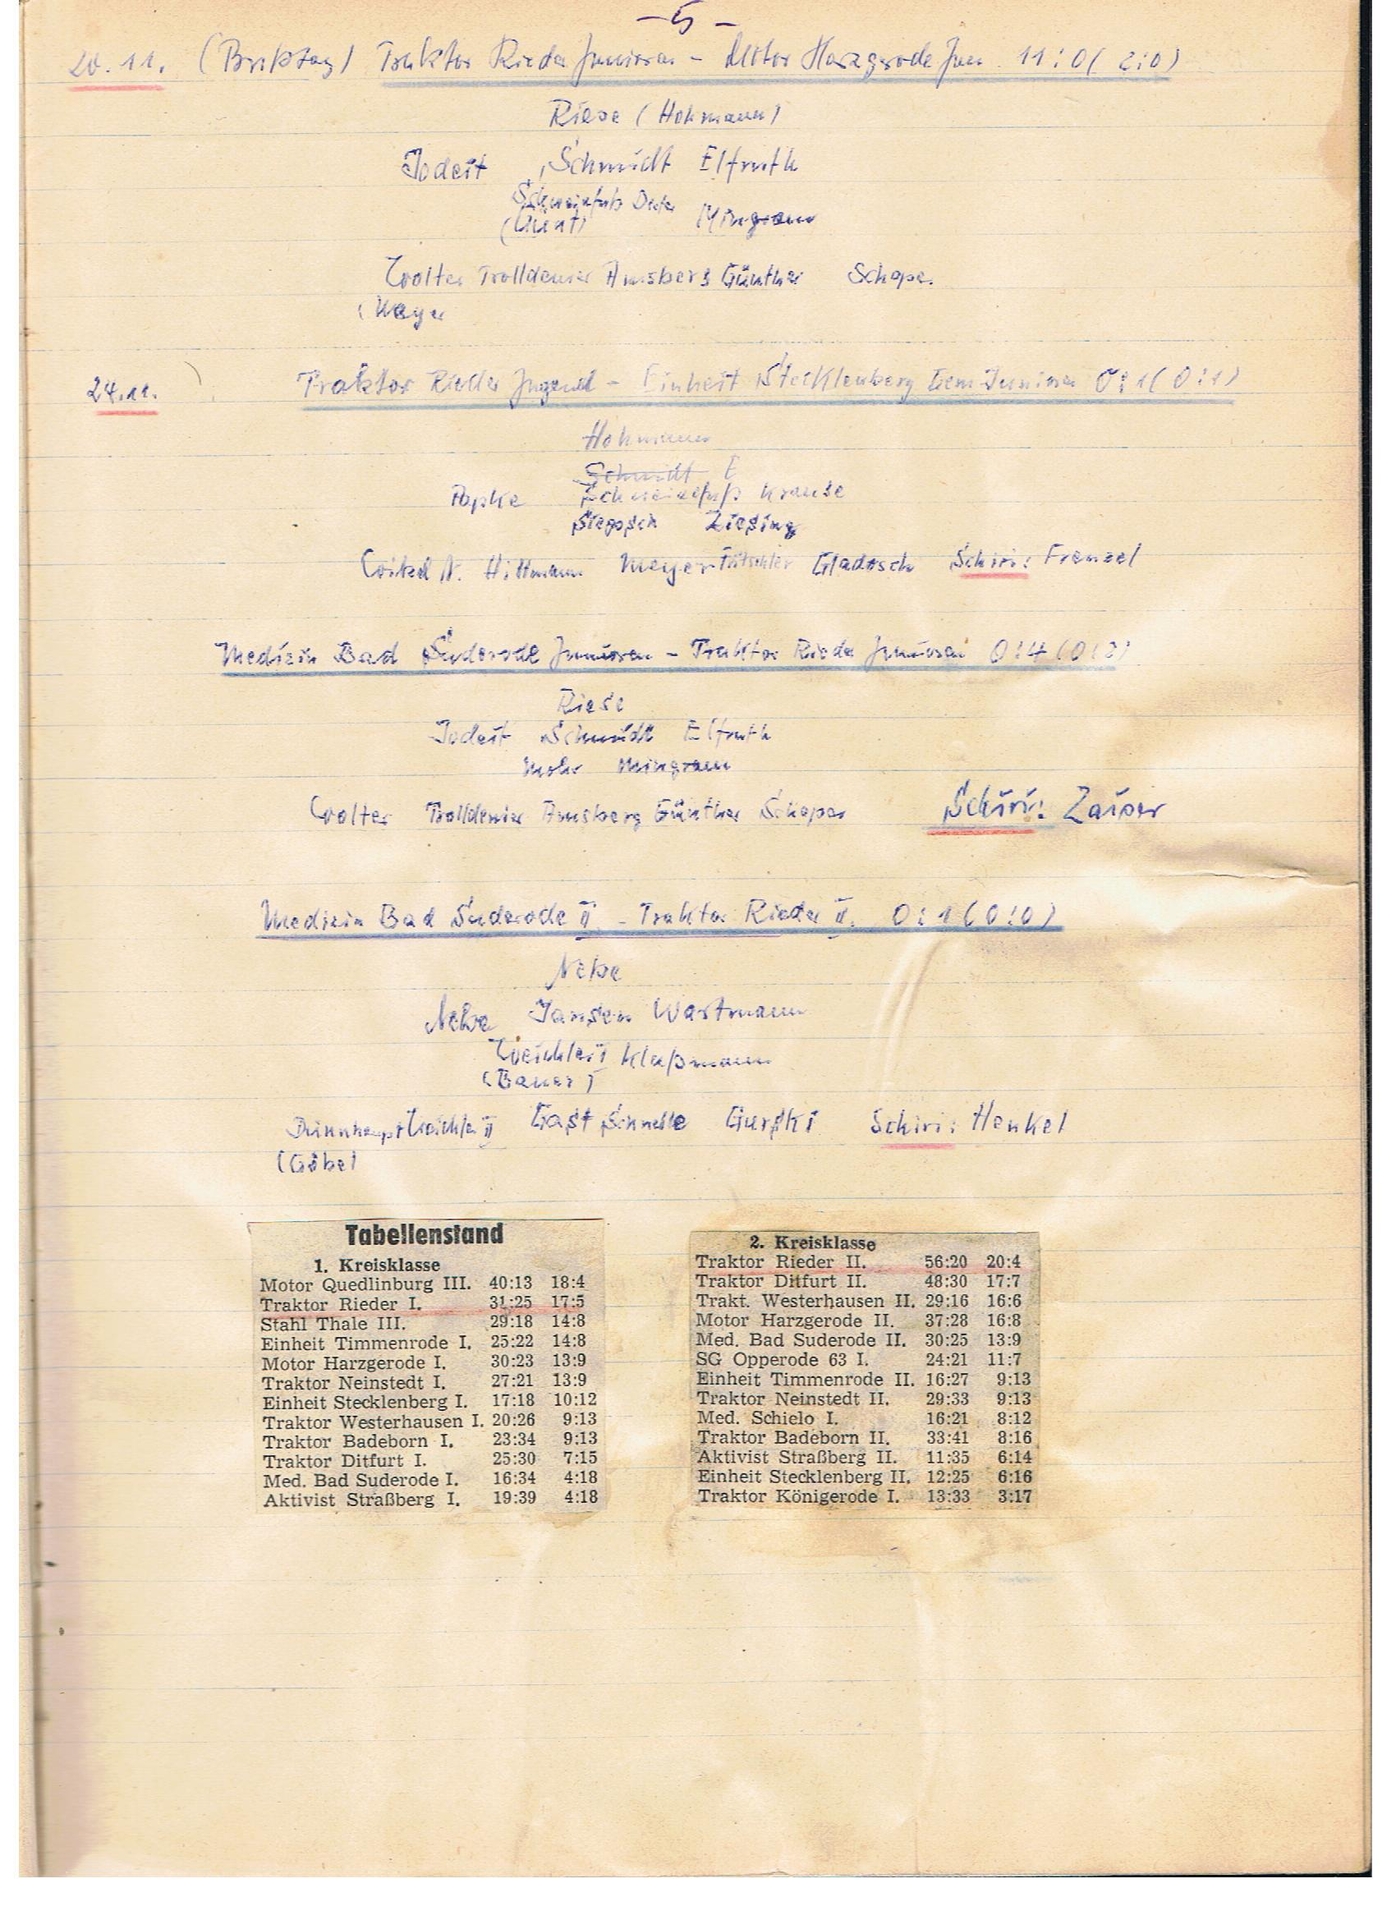 - 5 -
20.11. (Bußtag) Traktor Rieder Junioren - Motor Harzgerode Jun. 11:0 (2:0)
Riese (Hohmann)
Jodeit Schmidt Elfruth
Schweinefuß Dieter Mingram
Wolter Trolldenier Amsberg Günther Schaper
(Meyer
24.11. Traktor Rieder Jugend - Einheit Stecklenberg Gem. Junioren 0:1 (0:1)
Hohmann
Papke Schweinefuß Krause
Ziesing
N. Hittmann Meyer Gladosch Schiri: Frenzel
Medizin Bad Suderode Junioren - Traktor Rieder Junioren 0:4 (0:2)
Riese
Jodeit Schmidt Elfruth
Mohr Mingram
Wolter Trolldenier Amsberg Günther Schaper Schiri:
Medizin Bad Suderode II - Traktor Rieder II. 0:1 (0:0)
Nebe
Nebe Jansen Wartmann
Weichler I Klaßmann
(Bauer)
Weichler II Gast Schnelle Gurski Schiri: Henkel
(Göbel
Tabellenstand
1. Kreisklasse
Motor Quedlinburg III. 40:13 18:4
Traktor Rieder I. 31:25 17:5
Stahl Thale III. 29:18 14:8
Einheit Timmenrode I. 25:22 14:8
Motor Harzgerode I. 30:23 13:9
Traktor Neinstedt I. 27:21 13:9
Einheit Stecklenberg I. 17:18 10:12
Traktor Westerhausen I. 20:26 9:13
Traktor Badeborn I. 23:34 9:13
Traktor Ditfurt I. 25:30 7:15
Med. Bad Suderode I. 16:34 4:18
Aktivist Straßberg I. 19:39 4:18
2. Kreisklasse
Traktor Rieder II. 56:20 20:4
Traktor Ditfurt II. 48:30 17:7
Trakt. Westerhausen II. 29:16 16:6
Motor Harzgerode II. 37:28 16:8
Med. Bad Suderode II. 30:25 13:9
SG Opperode 63 I. 24:21 11:7
Einheit Timmenrode II. 16:27 9:13
Traktor Neinstedt II. 29:33 9:13
Med. Schielo I. 16:21 8:12
Traktor Badeborn II. 33:41 8:16
Aktivist Straßberg II. 11:35 6:14
Einheit Stecklenberg II. 12:25 6:16
Traktor Königerode I. 13:33 3:17